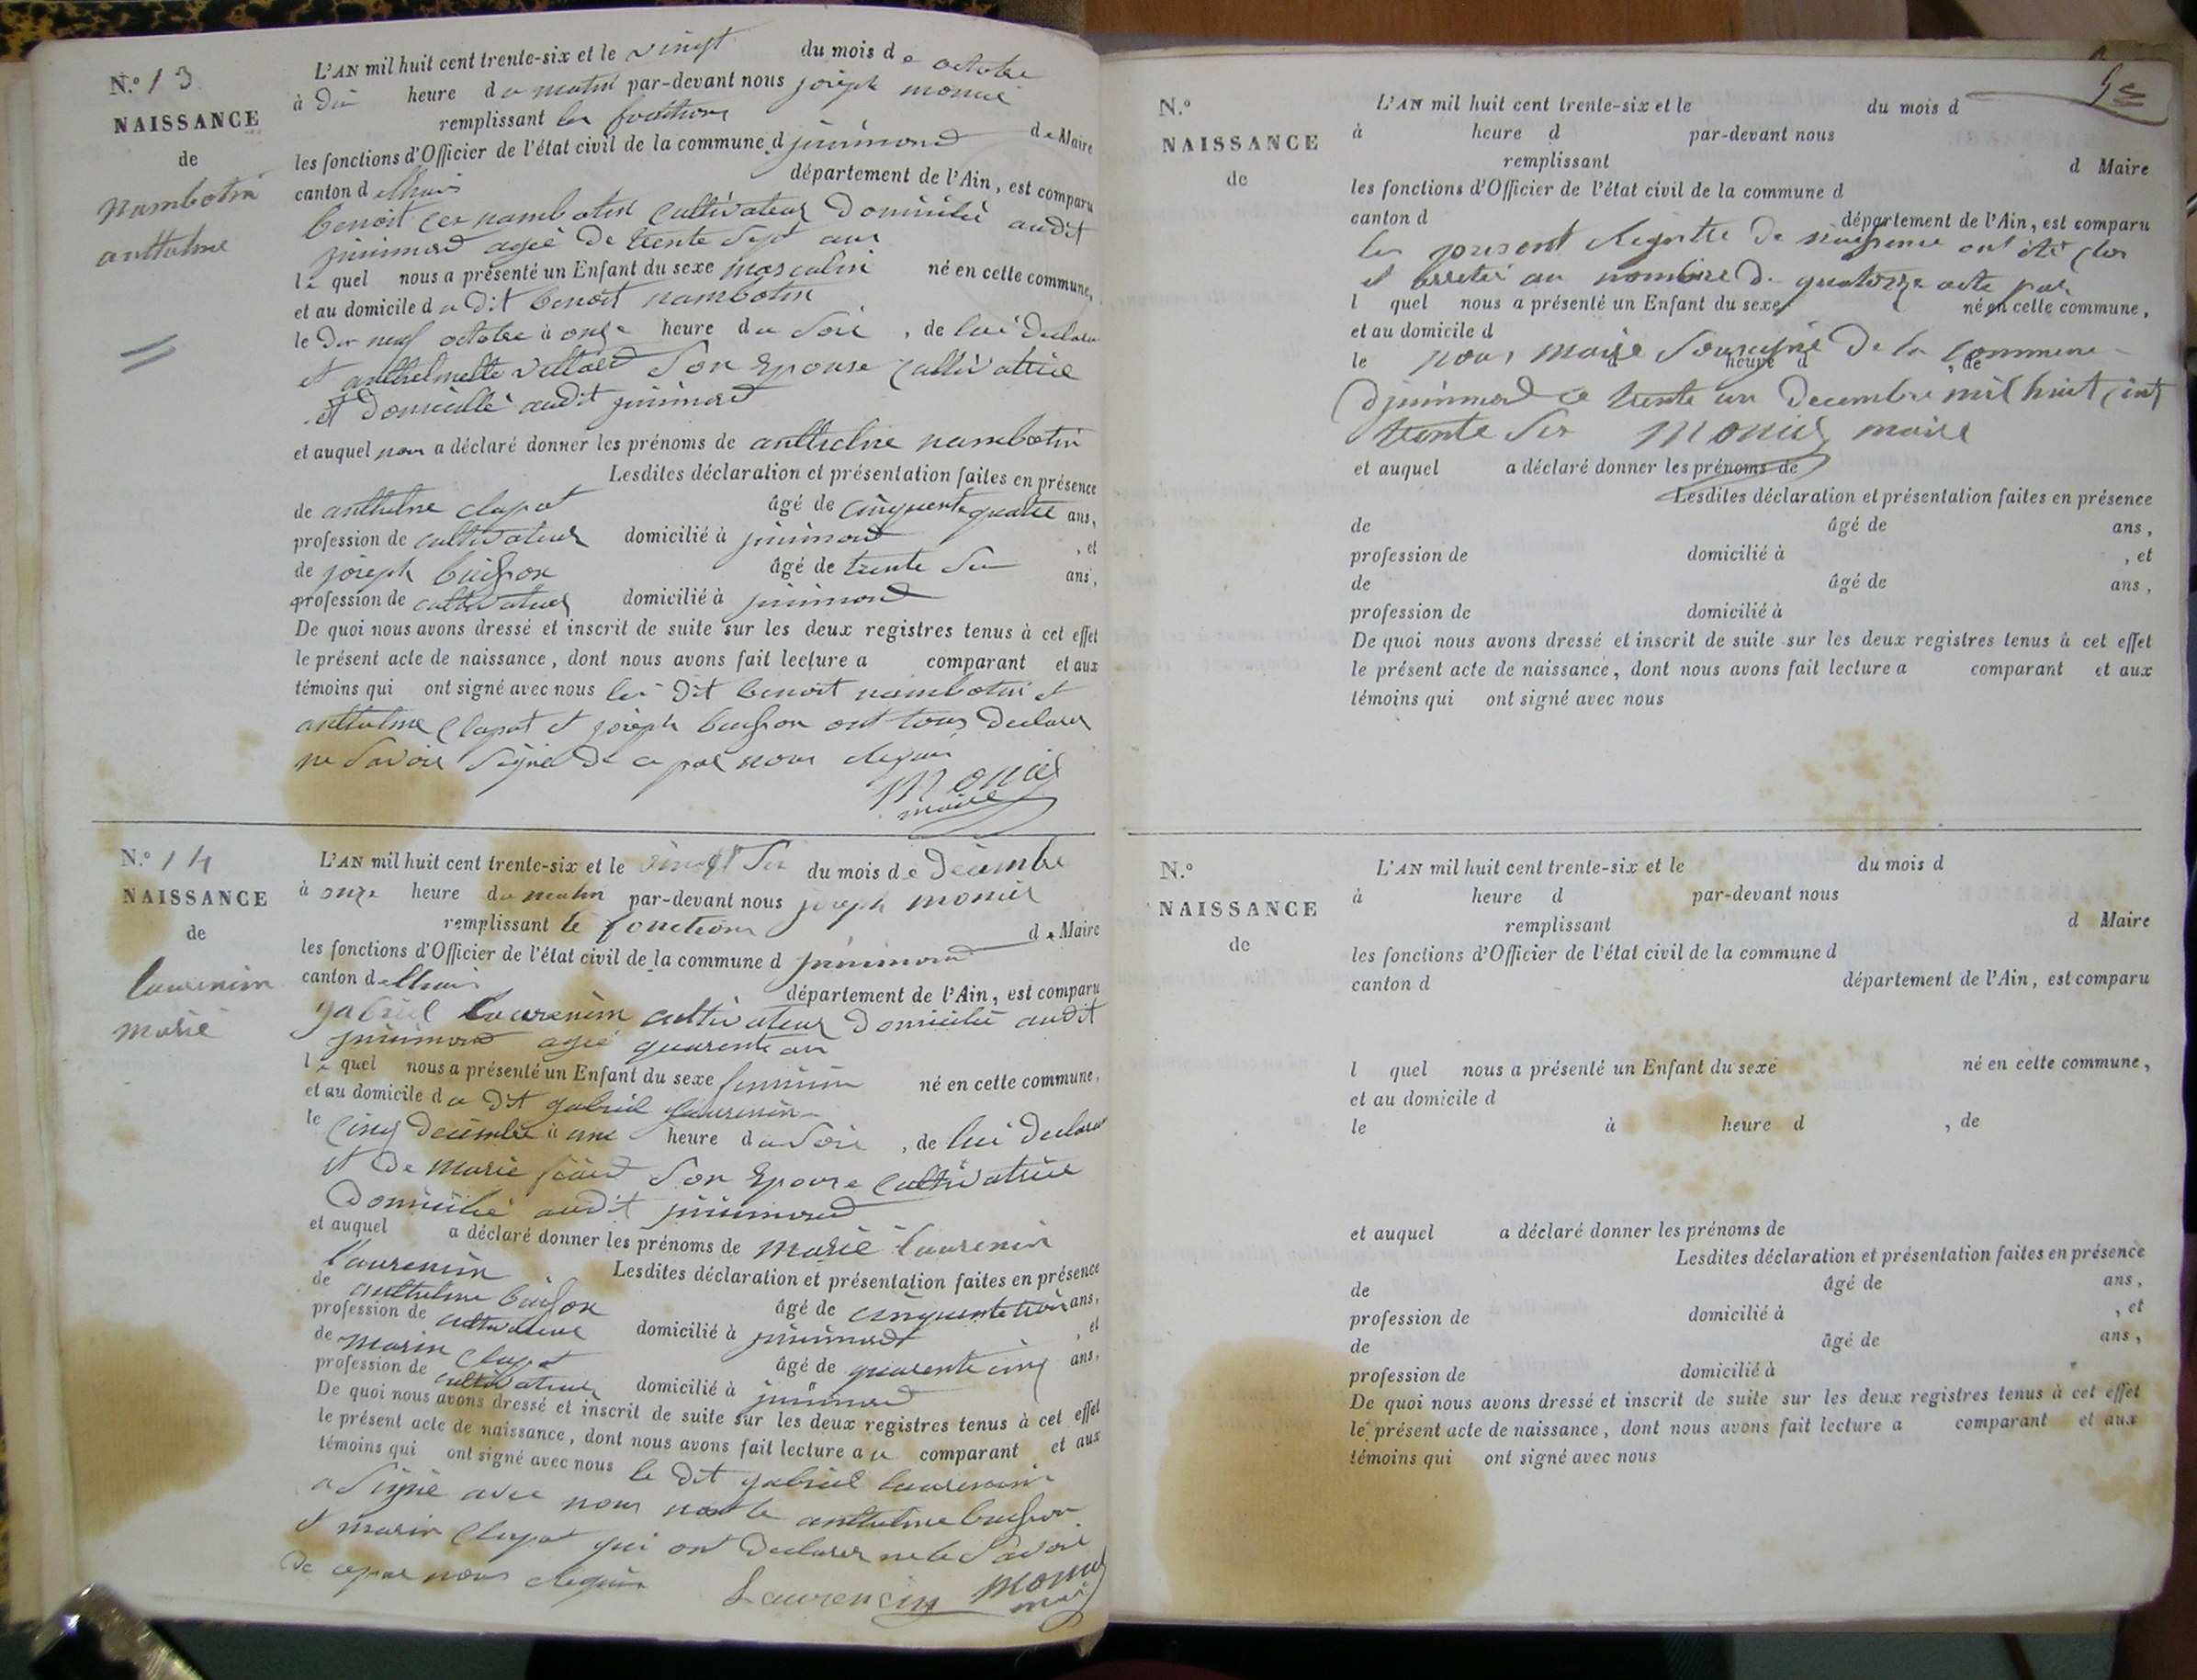 N.º 13
NAISSANCE
de
nambotin
anthelme
L'AN mil huit cent trente-six et le vingt du mois de octobre
à dix heure du matin par-devant nous joseph monier
remplissant les fonctions de Maire
les fonctions d'Officier de l'état civil de la commune d
canton d département de l'Ain, est comparu
benoit nambotin cultivateur domicilié audit
agé de trente sept ans
le quel nous a présenté un Enfant du sexe masculin né en cette commune,
et au domicile du dit benoit nambotin
le dix neuf octobre à onze heure du soir, de lui declaran
et anthelmette son epouse cultivatrice
et domicilié audit
et auquel nous a déclaré donner les prénoms de anthelme nambotin
Lesdites déclaration et présentation faites en présence
de anthelme clapot âgé de cinquente quatre ans,
profession de cultivateur domicilié à , et
de joseph buisson âgé de trente six ans,
profession de cultivateur domicilié à
De quoi nous avons dressé et inscrit de suite sur les deux registres tenus à cet effet
le présent acte de naissance, dont nous avons fait lecture a comparant et aux
témoins qui ont signé avec nous le dit benoit nambotin et
anthelme clapot et joseph buisson ont tous declarer
ne savoir signer de ce par nous
monier
maire
N.º 14
NAISSANCE
de
laurencin
marie
L'AN mil huit cent trente-six et le vingt six du mois de decembre
à onze heure du matin par-devant nous joseph monier
remplissant le fonctions de Maire
les fonctions d'Officier de l'état civil de la commune d
canton d département de l'Ain, est comparu
gabriel laurencin cultivateur domicilié audit
agé quarente an
le quel nous a présenté un Enfant du sexe feminin né en cette commune,
et au domicile du dit gabriel laurencin
le cinq decembre à une heure du soir, de lui declaran
et de marie son epouse cultivatrice
domicilié audit
et auquel a déclaré donner les prénoms de marie laurencin
laurencin Lesdites déclaration et présentation faites en présence
de anthelme buisson âgé de cinquente trois ans,
profession de cultivateur domicilié à , et
de marin clapot âgé de quarente cinq ans,
profession de cultivateur domicilié à
De quoi nous avons dressé et inscrit de suite sur les deux registres tenus à cet effet
le présent acte de naissance, dont nous avons fait lecture au comparant et aux
témoins qui ont signé avec nous le dit gabriel laurencin
a signé avec nous non le anthelme buisson
et marin clapot qui ont declarer ne le savoir
de ce par nous
Laurencin monier
N.º
NAISSANCE
de
L'AN mil huit cent trente-six et le du mois d
à heure d par-devant nous
remplissant d Maire
les fonctions d'Officier de l'état civil de la commune d
canton d département de l'Ain, est comparu
les present Registre de naissence ont été clos
et arreté au nombre de quatorze acte par
l quel nous a présenté un Enfant du sexe né en cette commune,
et au domicile d
nous maire soussigné de la commune
le à heure d , de
ce trente un decembre mil huit cent
trente six monier maire
et auquel a déclaré donner les prénoms de
Lesdites déclaration et présentation faites en présence
de âgé de ans,
profession de domicilié à , et
de âgé de ans,
profession de domicilié à
De quoi nous avons dressé et inscrit de suite sur les deux registres tenus à cet effet
le présent acte de naissance, dont nous avons fait lecture a comparant et aux
témoins qui ont signé avec nous
N.º
NAISSANCE
de
L'AN mil huit cent trente-six et le du mois d
à heure d par-devant nous
remplissant d Maire
les fonctions d'Officier de l'état civil de la commune d
canton d département de l'Ain, est comparu
l quel nous a présenté un Enfant du sexe né en cette commune,
et au domicile d
le à heure d , de
et auquel a déclaré donner les prénoms de
Lesdites déclaration et présentation faites en présence
de âgé de ans,
profession de domicilié à , et
de âgé de ans,
profession de domicilié à
De quoi nous avons dressé et inscrit de suite sur les deux registres tenus à cet effet
le présent acte de naissance, dont nous avons fait lecture a comparant et aux
témoins qui ont signé avec nous